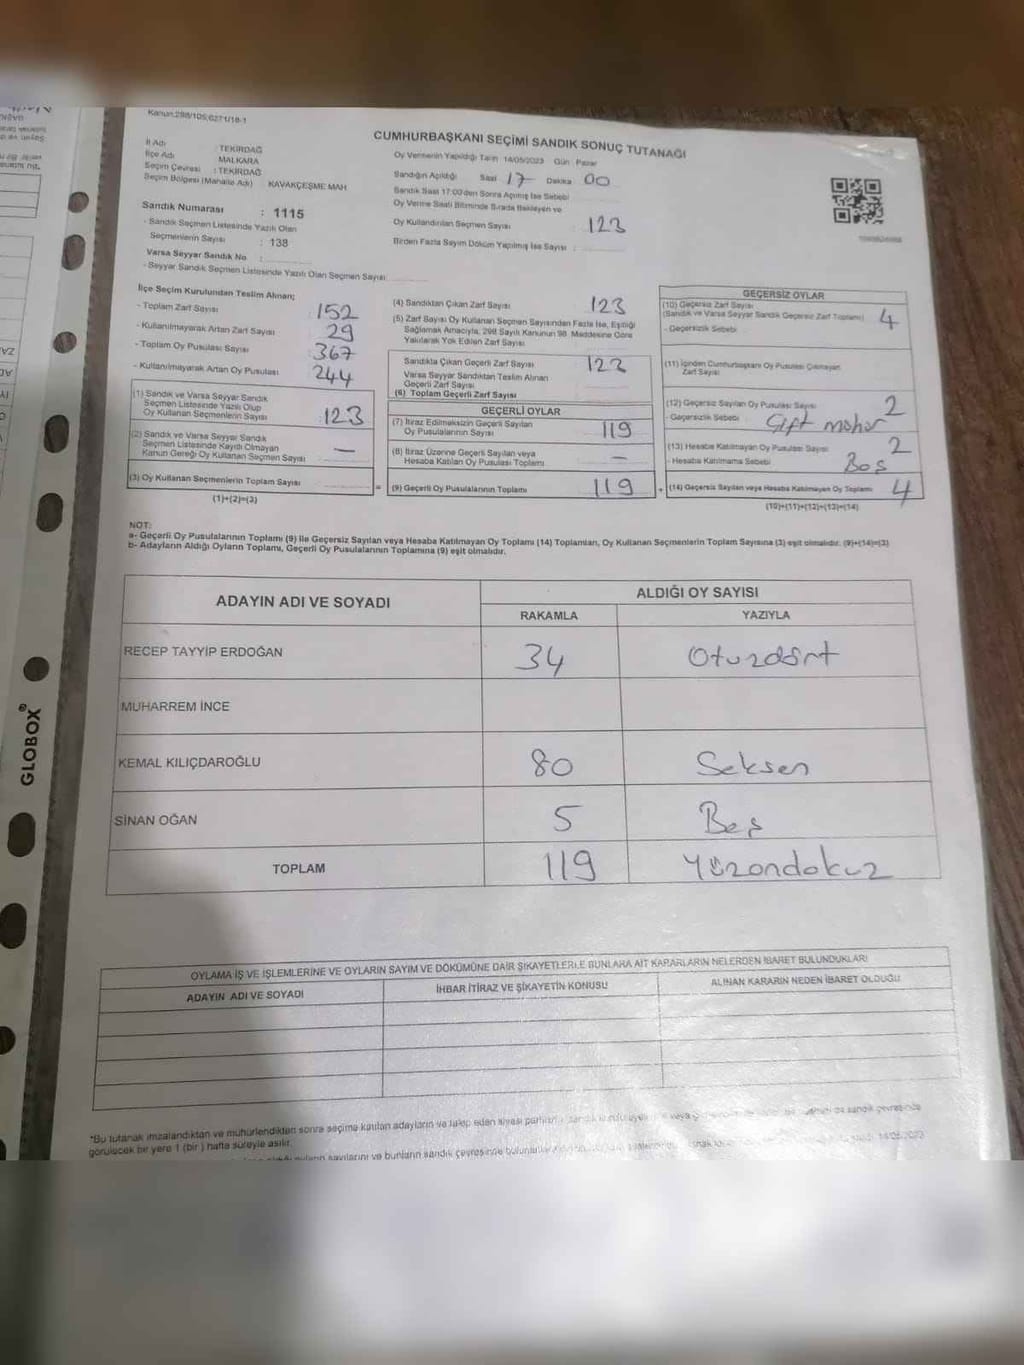 Kanun:298/105,6271/18-1
CUMHURBAŞKANI SEÇİMİ SANDIK SONUÇ TUTANAĞI
İl Adı : TEKİRDAĞ
İlçe Adı MALKARA
Seçim Çevresi : TEKİRDAĞ
Seçim Bölgesi (Mahalle Adı) KAVAKÇEŞME MAH
Sandık Numarası : 1115
- Sandık Seçmen Listesinde Yazılı Olan
Seçmenlerin Sayısı : 138
Varsa Seyyar Sandık No :
- Seyyar Sandık Seçmen Listesinde Yazılı Olan Seçmen Sayısı
Oy Vermenin Yapıldığı Tarih 14/05/2023 Gün Pazar
Sandığın Açıldığı Saat 17 Dakika 00
Sandık Saat 17:00'den Sonra Açılmış İse Sebebi
Oy Verme Saati Bitiminde Sırada Bekleyen ve
Oy Kullandırılan Seçmen Sayısı : 123
Birden Fazla Sayım Döküm Yapılmış İse Sayısı :
İlçe Seçim Kurulundan Teslim Alınan;
- Toplam Zarf Sayısı 152
- Kullanılmayarak Artan Zarf Sayısı 29
- Toplam Oy Pusulası Sayısı 367
- Kullanılmayarak Artan Oy Pusulası 244
(1) Sandık ve Varsa Seyyar Sandık
Seçmen Listesinde Yazılı Olup
Oy Kullanan Seçmenlerin Sayısı 123
(2) Sandık ve Varsa Seyyar Sandık
Seçmen Listesinde Kayıtlı Olmayan
Kanun Gereği Oy Kullanan Seçmen Sayısı —
(3) Oy Kullanan Seçmenlerin Toplam Sayısı
(1)+(2)=(3)
=
(4) Sandıktan Çıkan Zarf Sayısı 123
(5) Zarf Sayısı Oy Kullanan Seçmen Sayısından Fazla İse, Eşitliği
Sağlamak Amacıyla, 298 Sayılı Kanunun 98. Maddesine Göre
Yakılarak Yok Edilen Zarf Sayısı
Sandıkta Çıkan Geçerli Zarf Sayısı 123
Varsa Seyyar Sandıktan Teslim Alınan
Geçerli Zarf Sayısı
(6) Toplam Geçerli Zarf Sayısı
GEÇERLİ OYLAR
(7) İtiraz Edilmeksizin Geçerli Sayılan
Oy Pusulalarının Sayısı 119
(8) İtiraz Üzerine Geçerli Sayılan veya
Hesaba Katılan Oy Pusulası Toplamı –
(9) Geçerli Oy Pusulalarının Toplamı 119
+
GEÇERSİZ OYLAR
(10) Geçersiz Zarf Sayısı
(Sandık ve Varsa Seyyar Sandık Geçersiz Zarf Toplamı) 4
- Geçersizlik Sebebi
(11) İçinden Cumhurbaşkanı Oy Pusulası Çıkmayan
Zarf Sayısı
(12) Geçersiz Sayılan Oy Pusulası Sayısı 2
- Geçersizlik Sebebi : Çift mühür
(13) Hesaba Katılmayan Oy Pusulası Sayısı 2
- Hesaba Katılmama Sebebi Boş
(14) Geçersiz Sayılan veya Hesaba Katılmayan Oy Toplamı 4
(10)+(11)+(12)+(13)=(14)
NOT:
a- Geçerli Oy Pusulalarının Toplamı (9) ile Geçersiz Sayılan veya Hesaba Katılmayan Oy Toplamı (14) Toplamları, Oy Kullanan Seçmenlerin Toplam Sayısına (3) eşit olmalıdır. (9)+(14)=(3)
b- Adayların Aldığı Oyların Toplamı, Geçerli Oy Pusulalarının Toplamına (9) eşit olmalıdır.
ADAYIN ADI VE SOYADI
ALDIĞI OY SAYISI
RAKAMLA YAZIYLA
RECEP TAYYİP ERDOĞAN 34 Otuzdört
MUHARREM İNCE
KEMAL KILIÇDAROĞLU 80 Seksen
SİNAN OĞAN 5 Beş
TOPLAM 119 Yüzondokuz
OYLAMA İŞ VE İŞLEMLERİNE VE OYLARIN SAYIM VE DÖKÜMÜNE DAİR ŞİKAYETLERLE BUNLARA AİT KARARLARIN NELERDEN İBARET BULUNDUKLARI
ADAYIN ADI VE SOYADI İHBAR İTİRAZ VE ŞİKAYETİN KONUSU ALINAN KARARIN NEDEN İBARET OLDUĞU
*Bu tutanak imzalandıktan ve mühürlendikten sonra seçime katılan adayların ve takip eden siyasi partilerin
görülecek bir yere 1 (bir) hafta süreyle asılır.
GLOBOX®